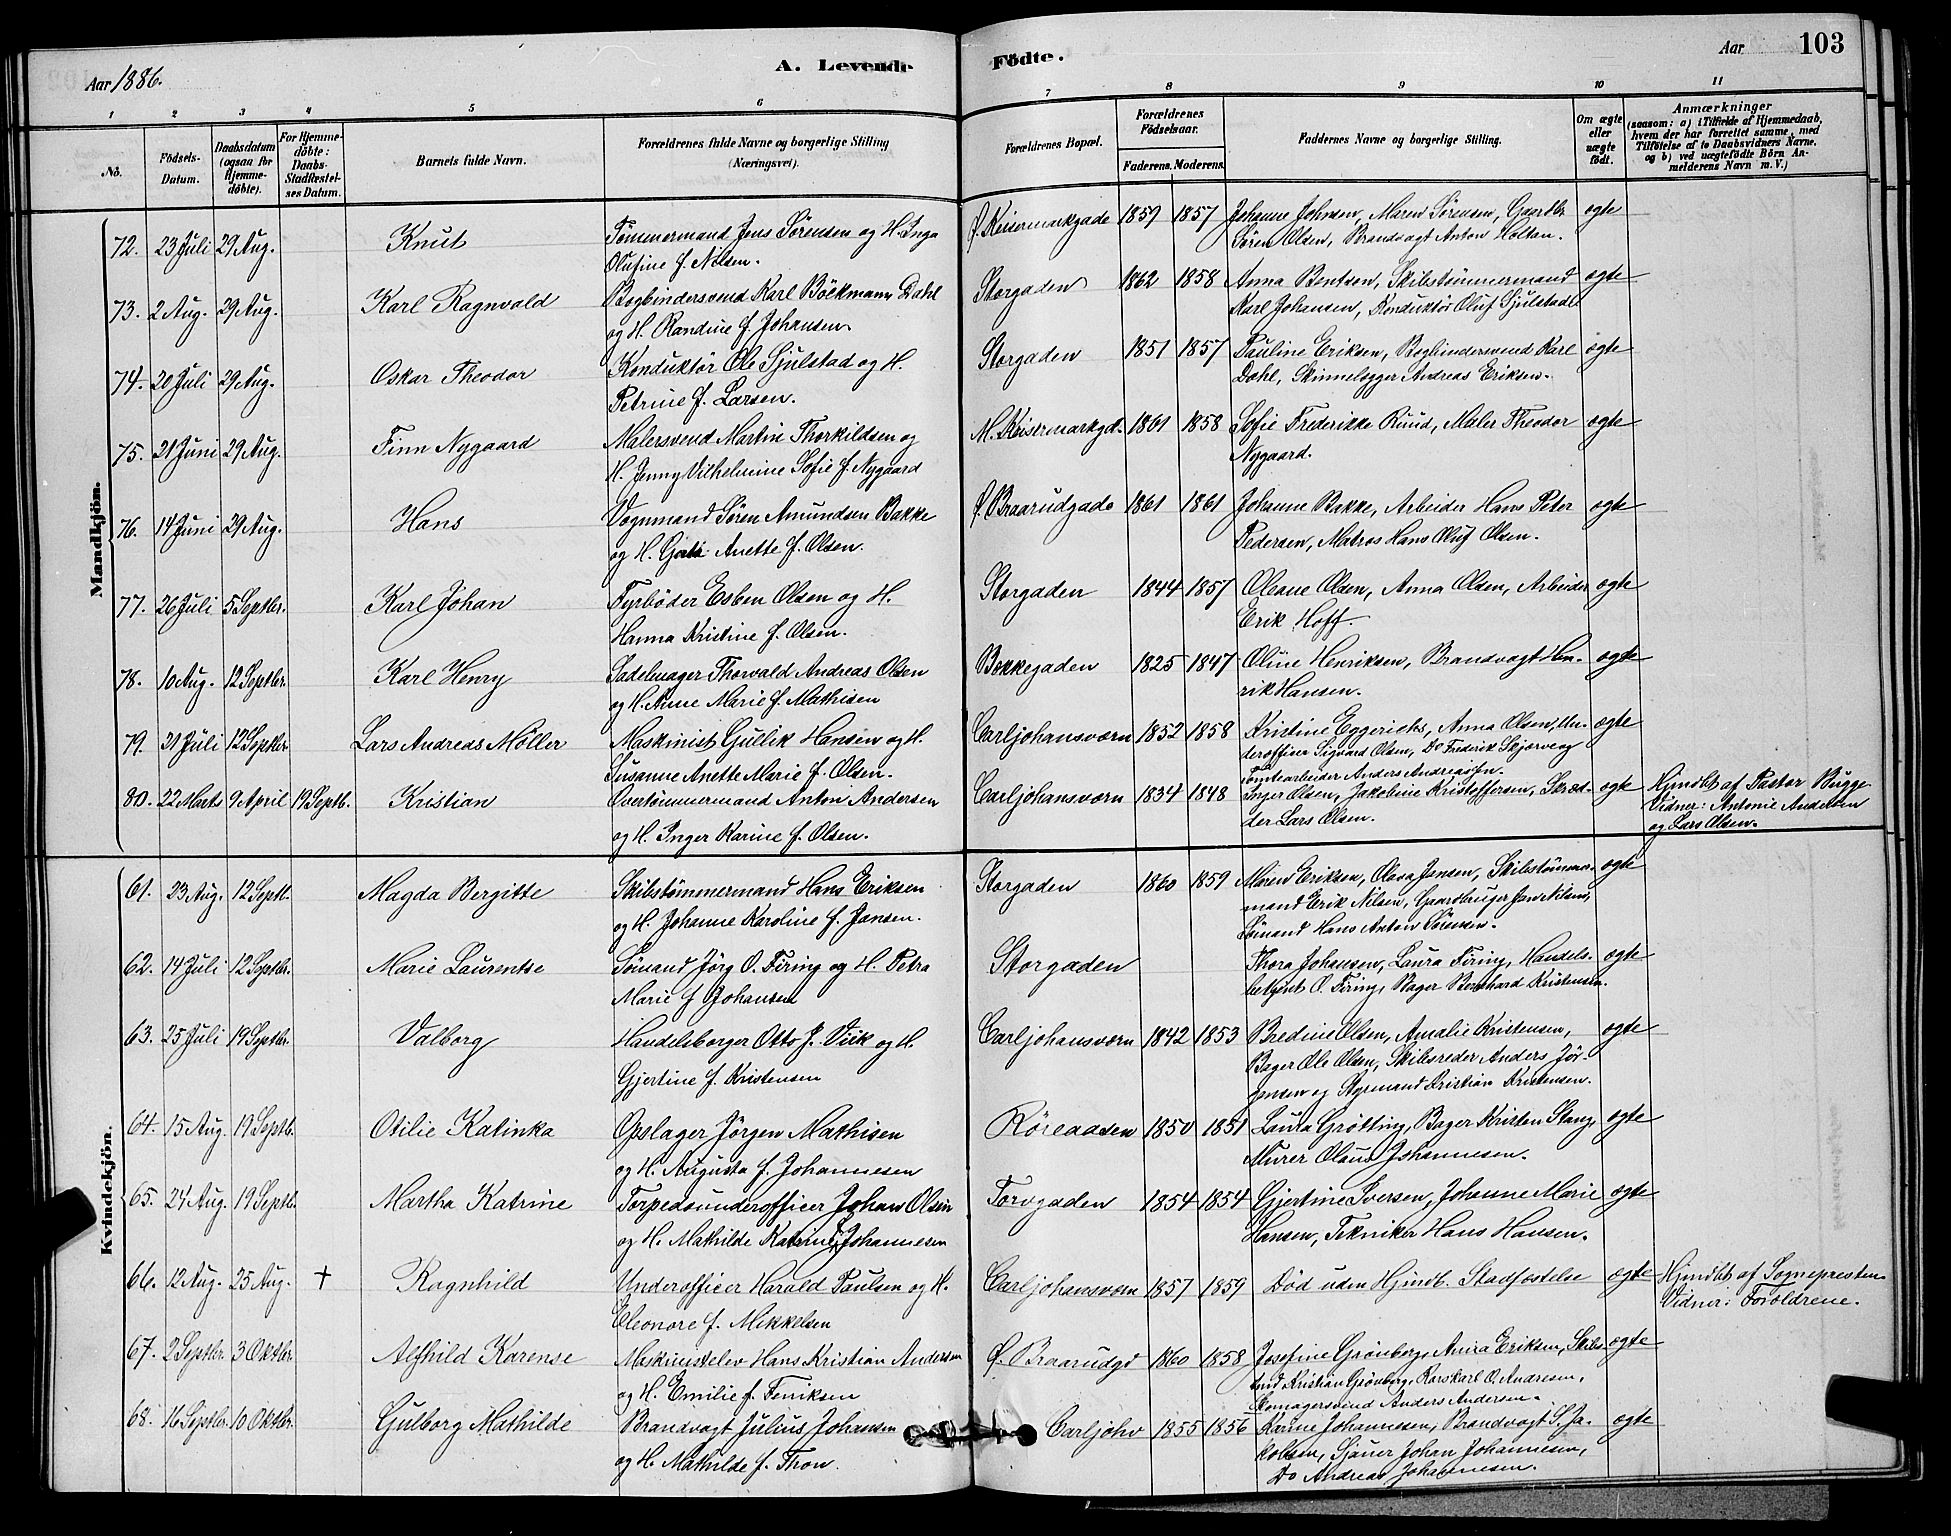 Aar 1886.
A. Levende
1 2 3 4 5 6
No.
Födsels-
Datum.
Daabsdatum
(ogsaa for
Hjemme-
döbte).
For Hjemme-
döbte:
Daabs-
Stadfæstel-
ses Datum.
Barnets fulde Navn.
Forældrenes fulde Navne og borgerlige Stilling
(Næringsvei).
Mandkjön.
72. 23 Juli 29 Aug. Knut Tømmermand Jens Sørensen og H. Inga
Olufine f. Nilsen.
73. 2 Aug. 29 Aug. Karl Ragnvald Bogbindersvend Karl Böckmann Dahl
og H. Randine f. Johansen.
74. 20 Juli 29 Aug. Oskar Theodor Konduktör Ole Sjulstad og H.
Petrine f. Larsen.
75. 21 Juni 29 Aug. Finn Nygaard Malersvend Martin Thorkildsen og
H. Jenny Vilhelmine Sofie f. Nygaard
76. 14 Juni 29 Aug. Hans Vognmand Sören Amundsen Bakke
og H. Anette f. Olsen.
77. 26 Juli 5 Septbr. Karl Johan Fyrböder Esben Olsen og H.
Hanna Kristine f. Olsen.
78. 10 Aug. 12 Septbr. Karl Henry Sadelmager Thorvald Andreas Olsen
og H. Anne Marie f. Mathisen
79. 21 Juli 12 Septbr. Lars Andreas Møller Maskinist Gullik Hansen og H.
Susanne Anette Marie f. Olsen.
80. 22 Marts 9 April 19 Septb. Kristian Overtömmermand Anton Andersen
og H. Inger Karine f. Olsen.
Kvindekjön.
61. 23 Aug. 12 Septb. Magda Bergitte Skibstömmermand Hans Eriksen
og H. Johanne Karoline f. Jansen.
62. 14 Juli 12 Septbr. Marie Laurentse Sömand Jörg O. Firing og H. Petra
Marie f Johansen
63. 25 Juli 19 Septbr. Valborg Handelsborger Otto J. Viik og H.
Gjertine f. Kristensen
64. 15 Aug. 19 Septb. Otilie Katinka Opslager Jörgen Mathisen
og H. Augusta f. Johannesen
65. 24 Aug. 19 Septb. Martha Katrine Torpedounderofficer Johan Olsen
og H. Mathilde Katrine f. Johannesen
66. 12 Aug. 25 Aug. † Ragnhild Underofficer Harald Paulsen og H.
Eleonore f. Mikkelsen
67. 2 Septbr. 3 Oktbr. Alfhild Karense Maskinistelev Hans Kristian Andersen
og H. Emilie f. Feniksen
68. 16 Septbr. 10 Oktbr. Gulborg Mathilde Brandvagt Julius Johansen
og H. Mathilde f. Thon.
Födte.
Aar 103
7 8 9 10 11
Forældrenes Bopæl.
Forældrenes
Födselsaar.
Faderens. Moderens.
Faddernes Navne og borgerlige Stilling.
Om ægte
eller
uægte
födt.
Anmærkninger
(saasom: a) i Tilfælde af Hjemmedaab,
hvem der har forrettet samme, med
Tilföielse af to Daabsvidners Navne,
og b) ved uægtefödte Börn An-
melderens Navn m. V.)
Ø. Keisermarkgade 1859 1857 Johanne Johnsen, Maren Sørensen, Gaardbr.
Sören Olsen, Brandvagt Anton Holtan. ægte
Storgaden 1862 1858 Anna Bentsen, Skibstømmermand
Karl Johansen, Konduktör Oluf Sjulstad ægte
Storgaden 1851 1857 Pauline Eriksen, Bogbindersvend Karl
Dahl, Skinnelægger Andreas Eriksen. ægte
M. Keisermarkgd. 1861 1858 Sofie Frederikke Ruud, Maler Theodor
Nygaard. ægte
Ø. Braarudgade 1861 1861 Johanne Bakke, Arbeider Hans Peter
Pedersen, Matros Hans Oluf Olsen. ægte
Storgaden 1844 1857 Oleane Olsen, Anna Olsen, Arbeider
Erik Hoff. ægte
Bækkegaden 1825 1847 Oline Henriksen, Brandvagt Hen-
rik Hansen. ægte
Carljohansværn 1852 1858 Kristine Eggerichs, Anna Olsen, Un-
derofficer Sigvard Olsen, Do Frederik Skjørve og
Tomtearbeider Anders Andreassen. ægte
Carljohansværn 1834 1848 Inger Olsen, Jakobine Kristoffersen, Skræd-
der Lars Olsen. ægte
Hjmdbt af Pastor Bugge
Vidner: Antonie Andersen
og Lars Olsen.
Storgaden 1860 1859 Maren Eriksen, Olava Jansen, Skibstømmer-
mand Erik Nilsen, Gaardbruger Jan Nilsen,
Sömand Hans Anton Sörensen. ægte
Storgaden Thora Johansen, Laura Firing, Handels-
betjent O. Firing, Bager Bernhard Kristensen. ægte
Carljohansværn 1842 1853 Bredine Olsen, Amalie Kristensen,
Bager Ole Olsen, Skibsreder Anders Jör-
gensen og Styrmand Kristian Kristensen. ægte
Röreaasen 1850 1851 Laura Grötting, Bager Kristen Stang,
Murer Olaus Johannesen. ægte
Torvgaden 1854 1854 Gjertine Iversen, Johanne Marie
Hansen, Tekniker Hans Hansen. ægte
Carljohansværn 1857 1859 Död uden Hjmdb. Stadfæstelse ægte
Hjmdbt af Sognepresten
Vidner: Forældrene.
Ø. Braarudgd 1860 1858 Josefine Grönberg, Anna Eriksen, Skibs-
tmd Kristian Grönberg, Rorskarl O. Andresen,
Skomagersvend Anders Andersen. ægte
Carljohv 1855 1856 Karine Johannesen, Brandvagt S. Ja-
kobsen, Sjauer Johan Johannesen,
Do Andreas Johannesen. ægte